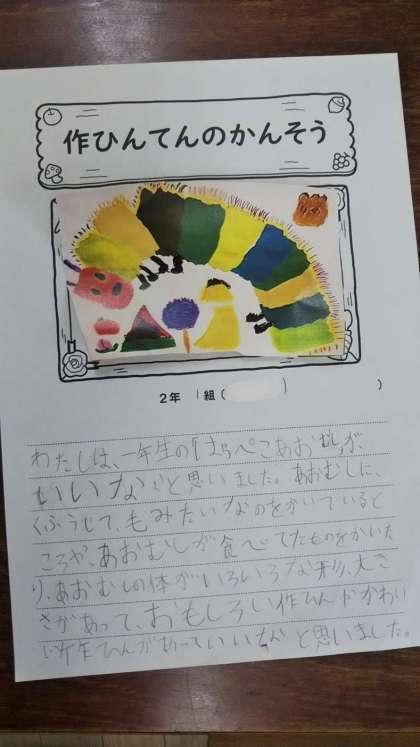 作ひんてんのかんそう
2年 1組( )
わたしは、一年生の「はらぺこあおむし」が、
いいな、と思いました。あおむしに、
くふうして、もみたいなのをかいていると
ころや、あおむしが食べてたものをかいた
り、あおむしの体がいろいろな形、大き
さがあって、おもしろい作ひんやかわい
い作ひんがあっていいな と思いました。